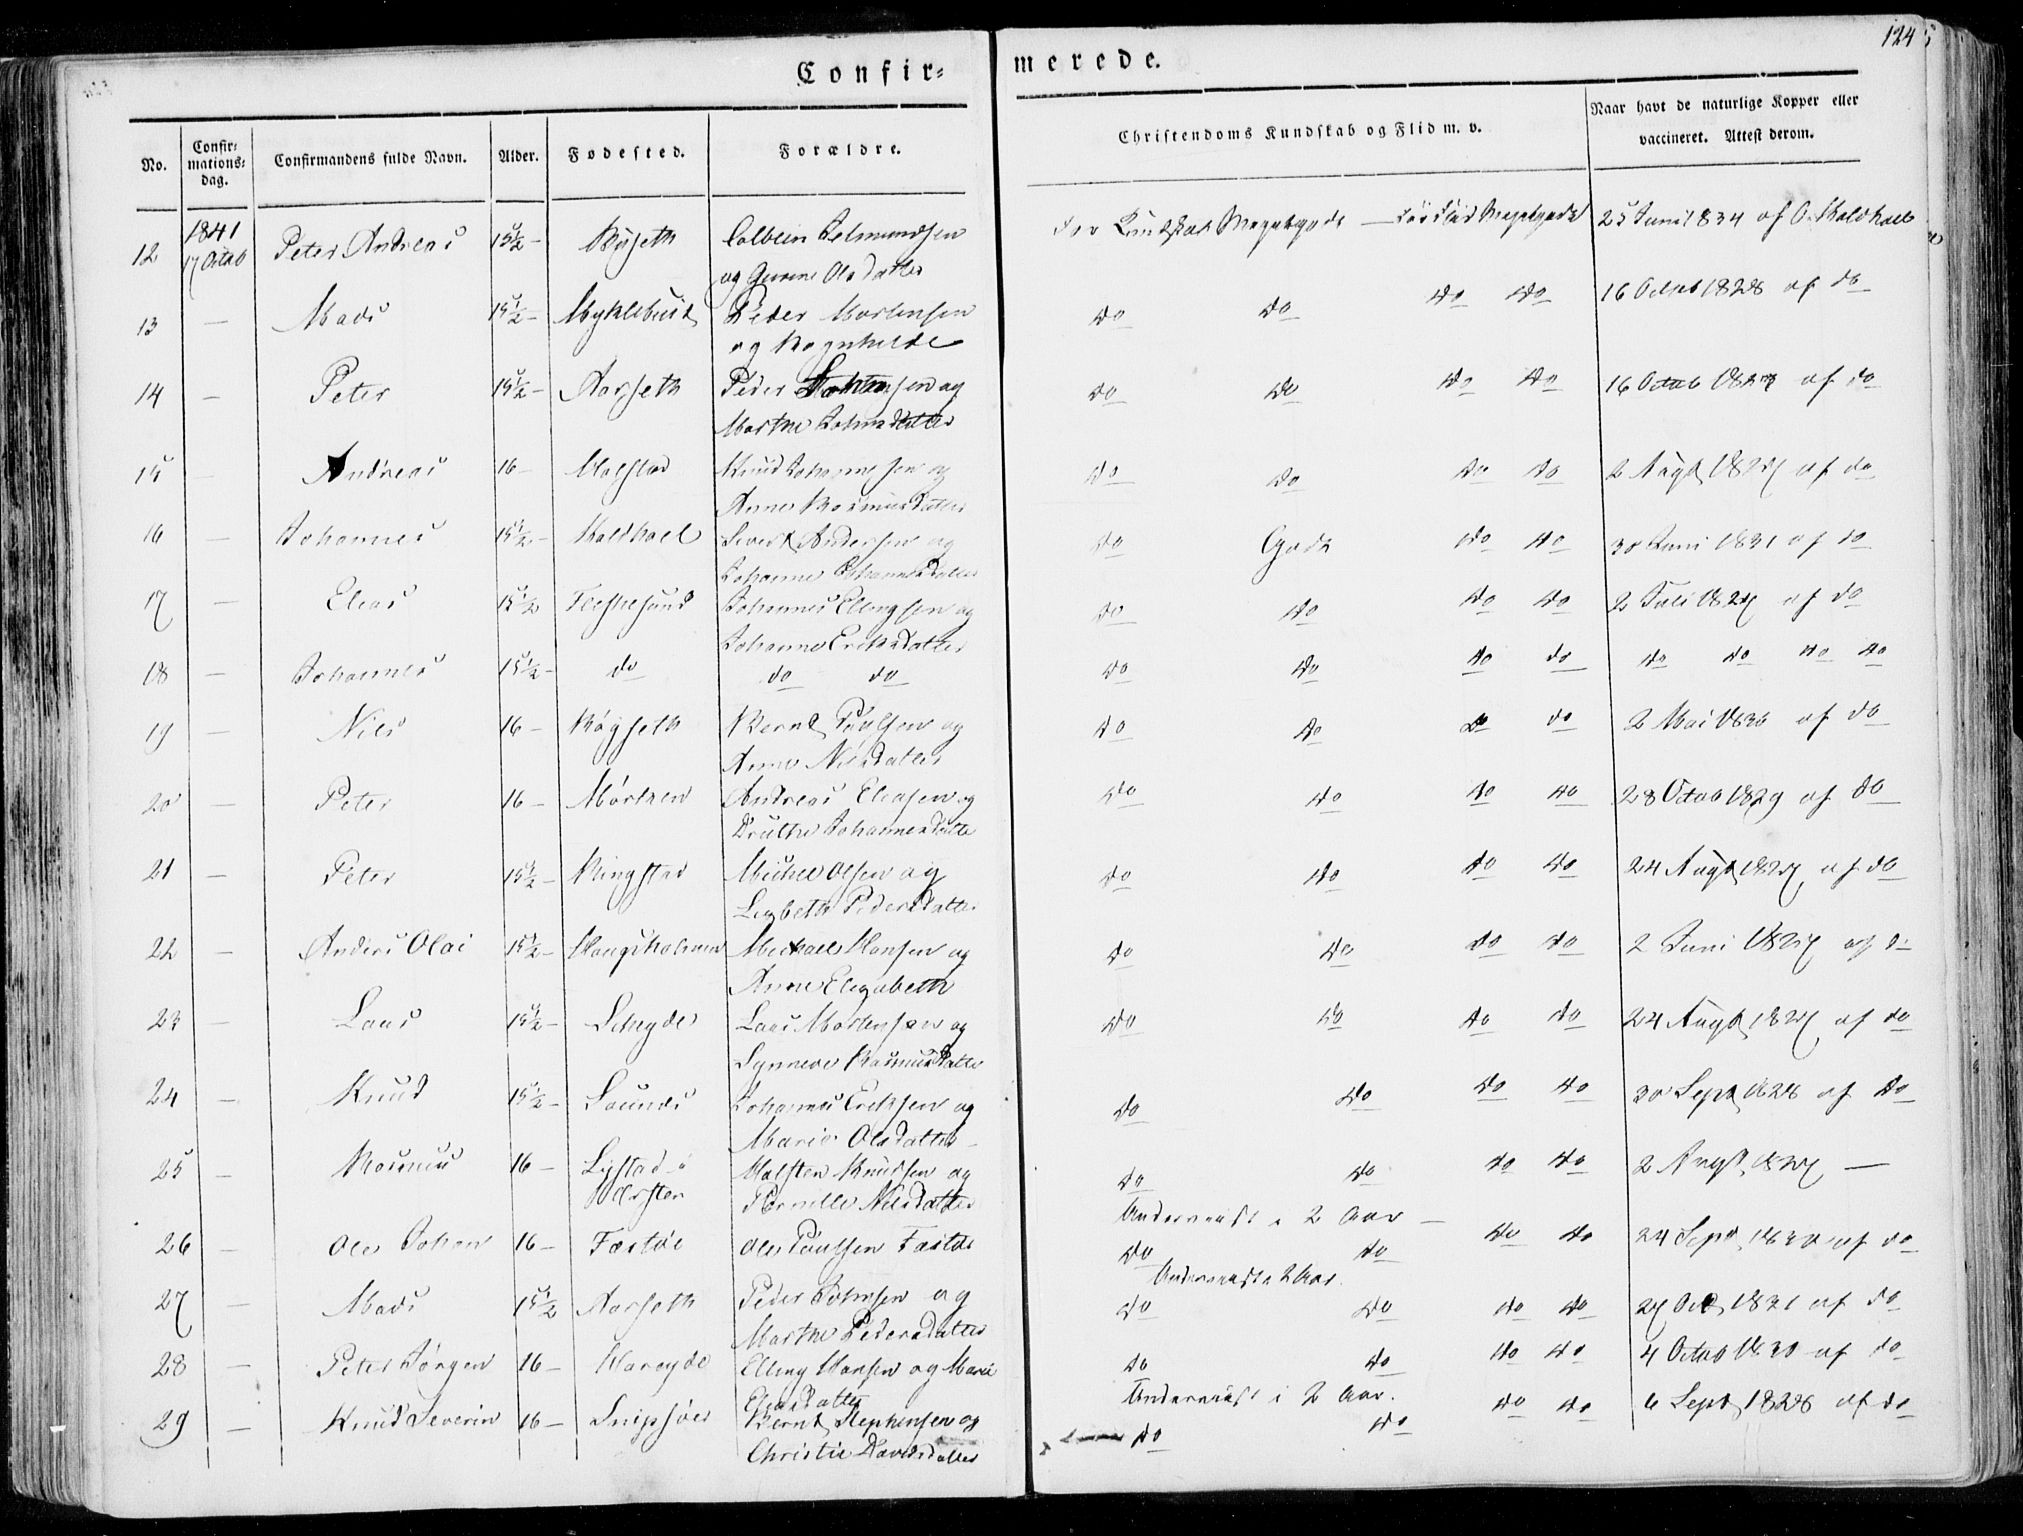 124
Confir=
merede.
No.
Confir=
mations=
dag.
Confirmandens fulde Navn.
Alder.
Fødested.
Forældre.
Christendoms Kundskab og Flid m. v.
Naar havt de naturlige Kopper eller
vaccineret. Attest derom.
12 1841 17 Octob Peter Andreas 15½ - Colbein
og Olsdatter
Kundskab Meget gode - Flid Meget gode 25 Juni 1834 af
13 - Mads 15½ - Myklebust Peder Mortensen
og Ragnhilde
do do do do 16 Octob 1828 af do
14 - Peter 15½ - Aarseth Peder Johnsen og
Marthe Johnsdatter
do do do do 16 Octob af do
15 - Andreas 16 - Molstad Knud Johannesen og
Anne Rasmusdatter
do do do do 2 Augt 1827 af do
16 - Johannes 15½ - Koldhoel Sivert Andersen og
Johanne Johannesdatter
do Gode do do 30 Juni 1831 af do
17 - Elias 15½ Flessesund Johannes Ellingsen og
Johanne Eriksdatter
do do do do 2 Juli 1827 af do
18 - Johannes 15½ - do do do
do do do do do do do do
19 - Nils 16 - Røgseth Bernt Paulsen og
Anne Nilsdatter
do do do do 2 Mai 1836 af do
20 - Peter 16 - Andreas Eliasen og
Johannesdatter
do do do do 28 Octob 1829 af do
21 - Peter 15½ - Ringstad Michel Olsen og
Lisbeth Pedersdatter
do do do do 24 Augt 1827 af do
22 - Anders Olai 15½ - Haugsholmen Michael Hansen og
Anne Elisabeth
do do do do 2 Juni 1827 af do
23 - Lars 15½ - Lars Mortensen og
Synneve Rasmusdatter
do do do do 24 Augt 1827 af do
24 - Knud 15½ - Saunes Johannes Eriksen og
Marie Olsdatter -
do do do do 30 Sept 1828 af do
25 - Rasmus 16 - Lystad i
Ørsten
Halsten Knudsen og
Pernille Nilsdatter
do do do do 2 Augt 1827 -
Underviist i 2 Aar -
26 - Ole Johan 16 - Fastøe Ole Paulsen Fastøe
do do do do 24 Sept 1830 af do
Underviist i 2 Aar.
27 - Mads 15½ Aarseth Peder Johnsen og
Marthe Pedersdatter
do do do do 27 Oct 1831 af do
28 - Peter Jørgen 16 - Hareyde Elling Hansen og Marie
do do do do 4 Octob 1830 af do
Underviist i 2 Aar.
29 - Knud Severin 16 - Snipsøer Bernt Stephensen og
Christie Davidsdatter
do do do do 6 Sept 1828 af do